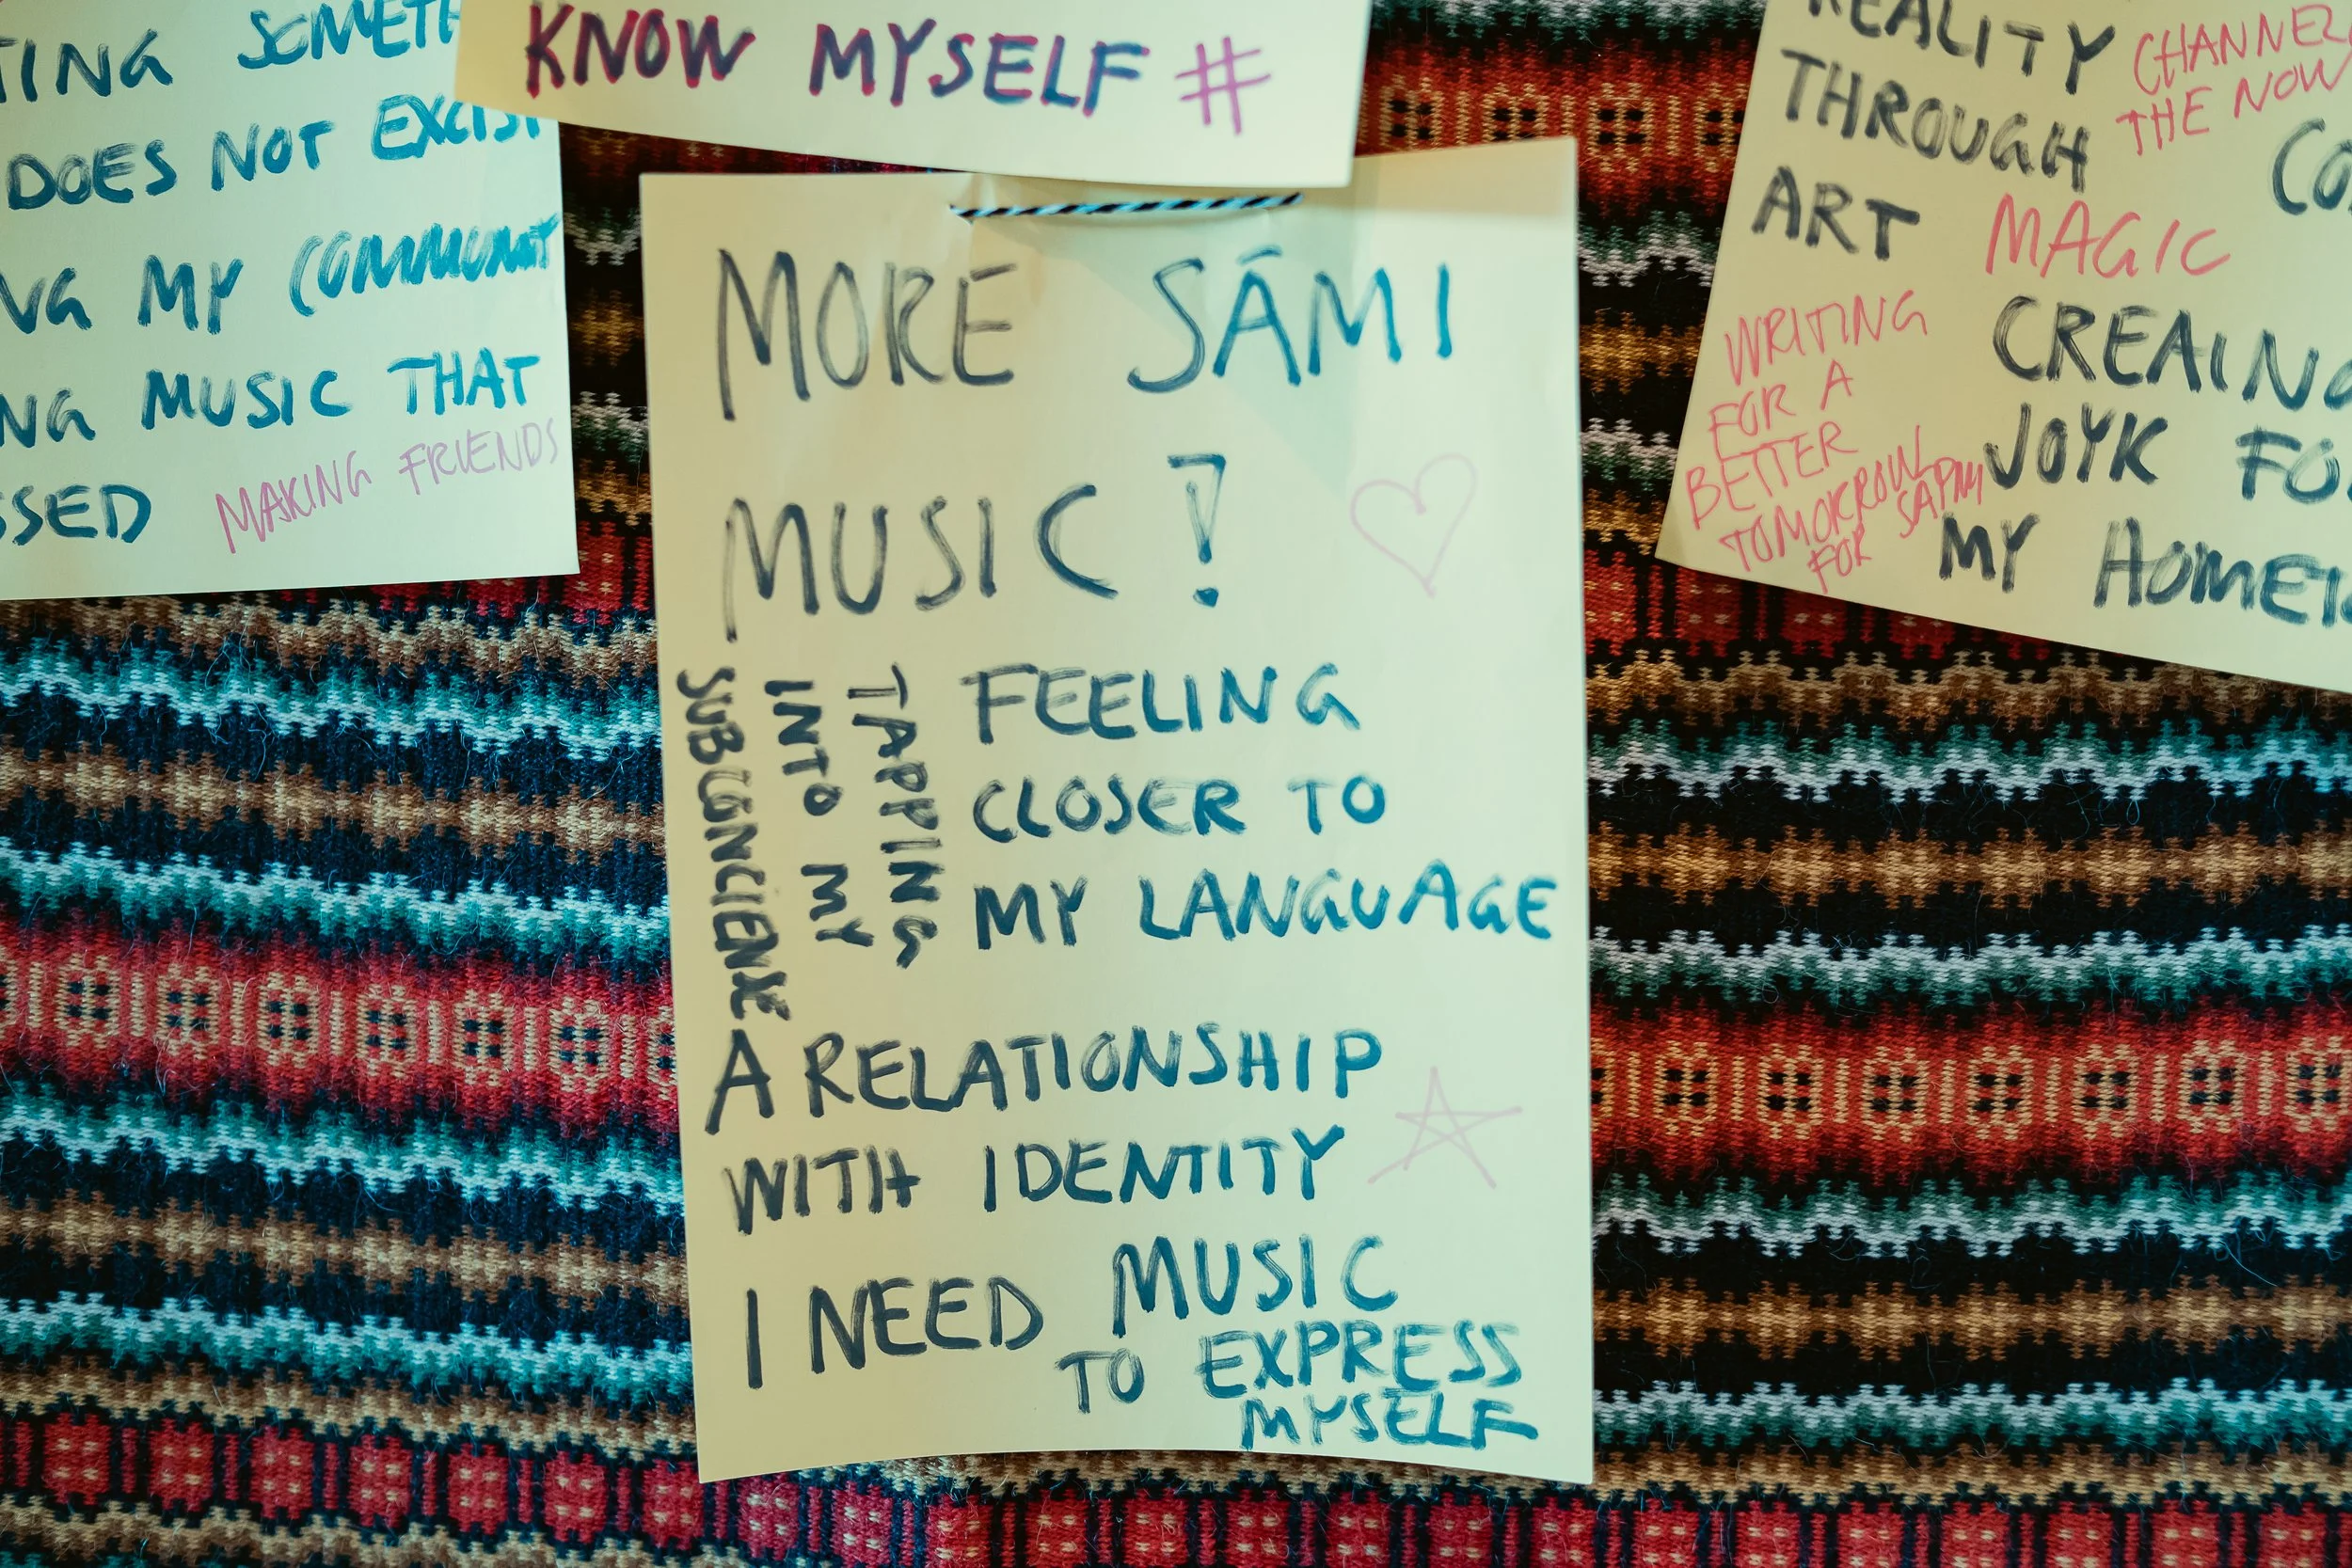 SOMETH
DOES NOT EXCIST
MY COMMUNIT
MUSIC THAT
MAKING FRIENDS
KNOW MYSELF #
MORE SÁMI
MUSIC!
TAPPING
INTO MY
FEELING
CLOSER TO
MY LANGUAGE
A RELATIONSHIP
WITH IDENTITY
I NEED MUSIC
TO EXPRESS
MYSELF
REALITY
THROUGH
ART
CHANNEL
THE NOW
MAGIC
WRITING
FOR A
BETTER
TOMORROW
FOR SÁPMI
CREAING
JOYK FO
MY HOME